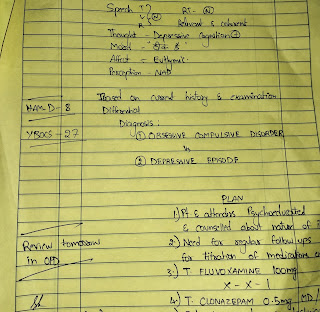 Speech T
V Ⓝ RT - Ⓝ
R Relevant & coherent
Thought - Depressive Cognition
Mood - "
Affect = Euthymic
Perception - NAD
Based on current history & examination
HAM-D - 8 Differential
Diagnosis:
YBOCS - 27 ① OBSESSIVE COMPULSIVE DISORDER
② DEPRESSIVE EPISODE
PLAN
1.) Pt & attenders Psychoeducated
& counselled about nature of
Review tomorrow 2.) Need for regular follow ups
in OPD for titration of medications
3.) T. FLUVOXAMINE 100mg
x - x - 1
4.) T. CLONAZEPAM 0.5mg MD